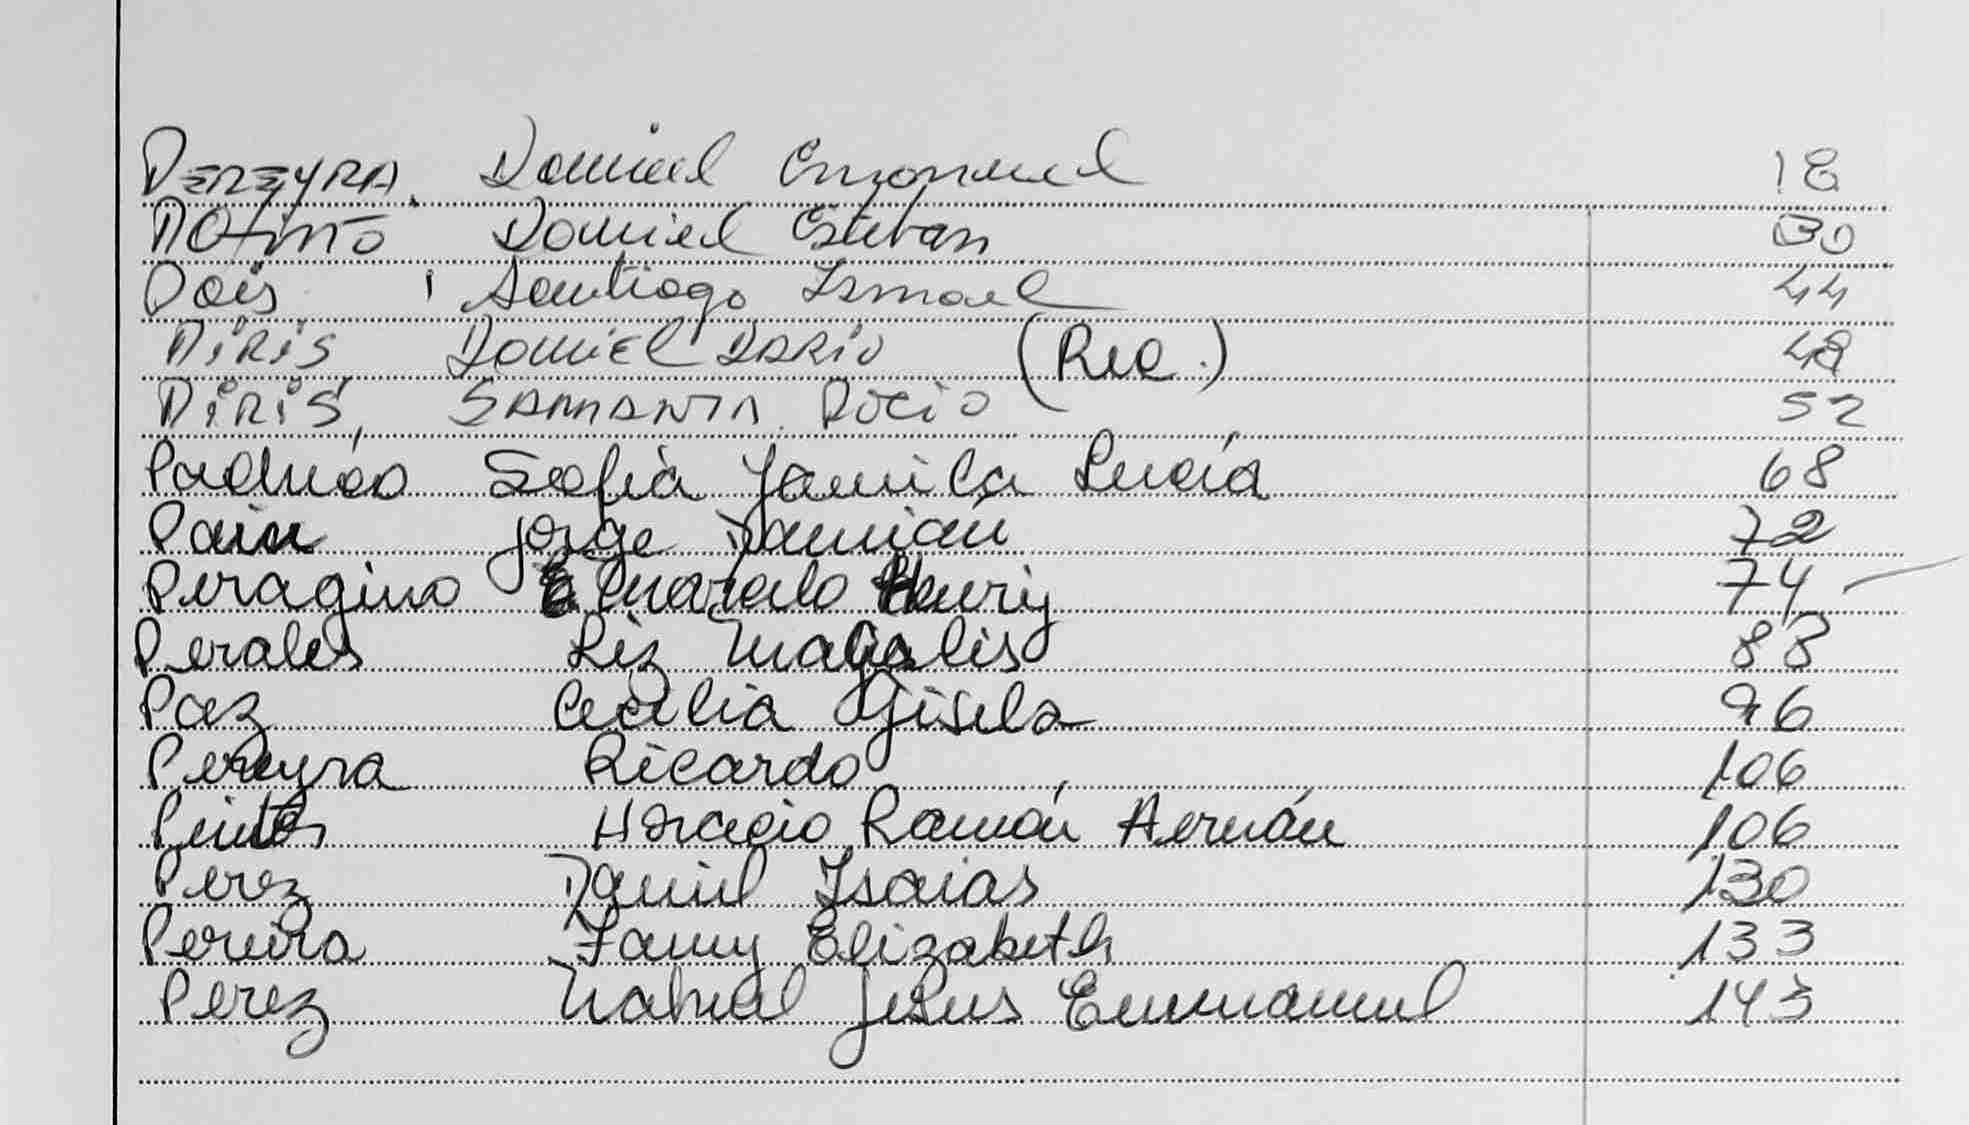 PEREYRA, Daniel Emanuel 18
Patiño Daniel Esteban 30
Pais, Santiago Ismael 44
PIRIS DANIEL DARIO (Rec.) 48
PIRIS, SAMANTA ROCIO 52
Sofía Yamila Lucía 68
Pain Jorge Damián 72
Peragino Marcelo Henry 74
Perales Liz Magalis 88
Paz Cecilia Gisela 96
Pereyra Ricardo 106
Horacio Ramón Hernán 106
Perez Daniel Isaias 130
Pereira Fanny Elizabeth 133
Perez Nahuel Jesus Emmanuel 143